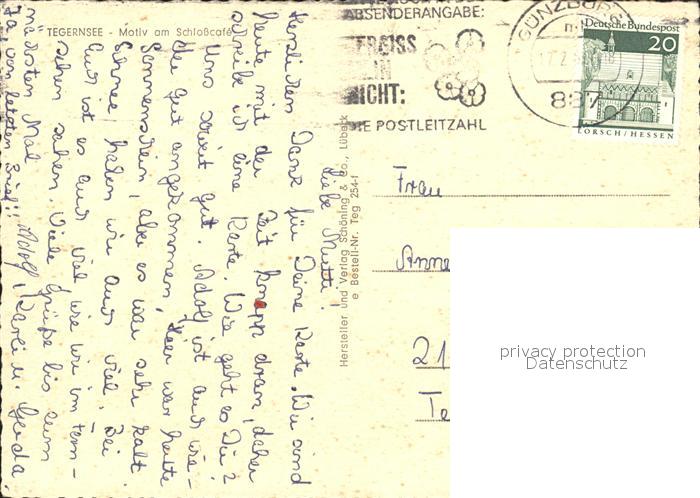 TEGERNSEE - Motiv am Schloßcafé
ABSENDERANGABE:
VERGISS
MEIN
NICHT:
DIE POSTLEITZAHL
GÜNZBURG
17.2
887
Deutsche Bundespost
20
LORSCH/HESSEN
Hersteller und Verlag Schöning & Co., Lübeck
Bestell-Nr. Teg 254-f
Liebe Mutti!
Herzlichen Dank für Deine Karte. Wir sind
heute mit der Zeit knapp dran, daher
schreibe ich eine Karte. Wie geht es Dir?
Uns soweit gut. Adolf ist auch wie-
der gut angekommen, hier war heute
Sonnenschein, aber es war sehr kalt.
Schnee haben wir auch viel. Bei
Euch ist es auch viel wie wir im Fern-
sehen sahen. Viele Grüße bis zum
nächsten Mal
Adolf, Karli u. Gerda
Ja vom letzten Brief!!
Frau
Anne
21
Te
privacy protection
Datenschutz